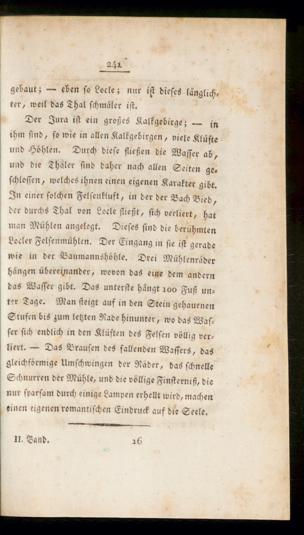 241
gebaut; — eben so Locle; nur ist dieses länglich-
ter, weil das Thal schmäler ist.
Der Jura ist ein großes Kalkgebirge; — in
ihm sind, so wie in allen Kalkgebirgen, viele Klüfte
und Höhlen. Durch diese fließen die Wasser ab,
und die Thäler sind daher nach allen Seiten ge-
schlossen, welches ihnen einen eigenen Karakter gibt.
In einer solchen Felsenkluft, in der der Bach Bied,
der durchs Thal von Locle fließt, sich verliert, hat
man Mühlen angelegt. Dieses sind die berühmten
Locler Felsenmühlen. Der Eingang in sie ist gerade
wie in der Baumannshöhle. Drei Mühlenräder
hängen übereinander, wovon das eine dem andern
das Wasser gibt. Das unterste hängt 100 Fuß un-
ter Tage. Man steigt auf in den Stein gehauenen
Stufen bis zum letzten Rade hinunter, wo das Was-
ser sich endlich in den Klüften des Felsen völlig ver-
liert. — Das Brausen des fallenden Wassers, das
gleichförmige Umschwingen der Räder, das schnelle
Schnurren der Mühle, und die völlige Finsterniß, die
nur sparsam durch einige Lampen erhellt wird, machen
einen eigenen romantischen Eindruck auf die Seele.
II. Band. 16